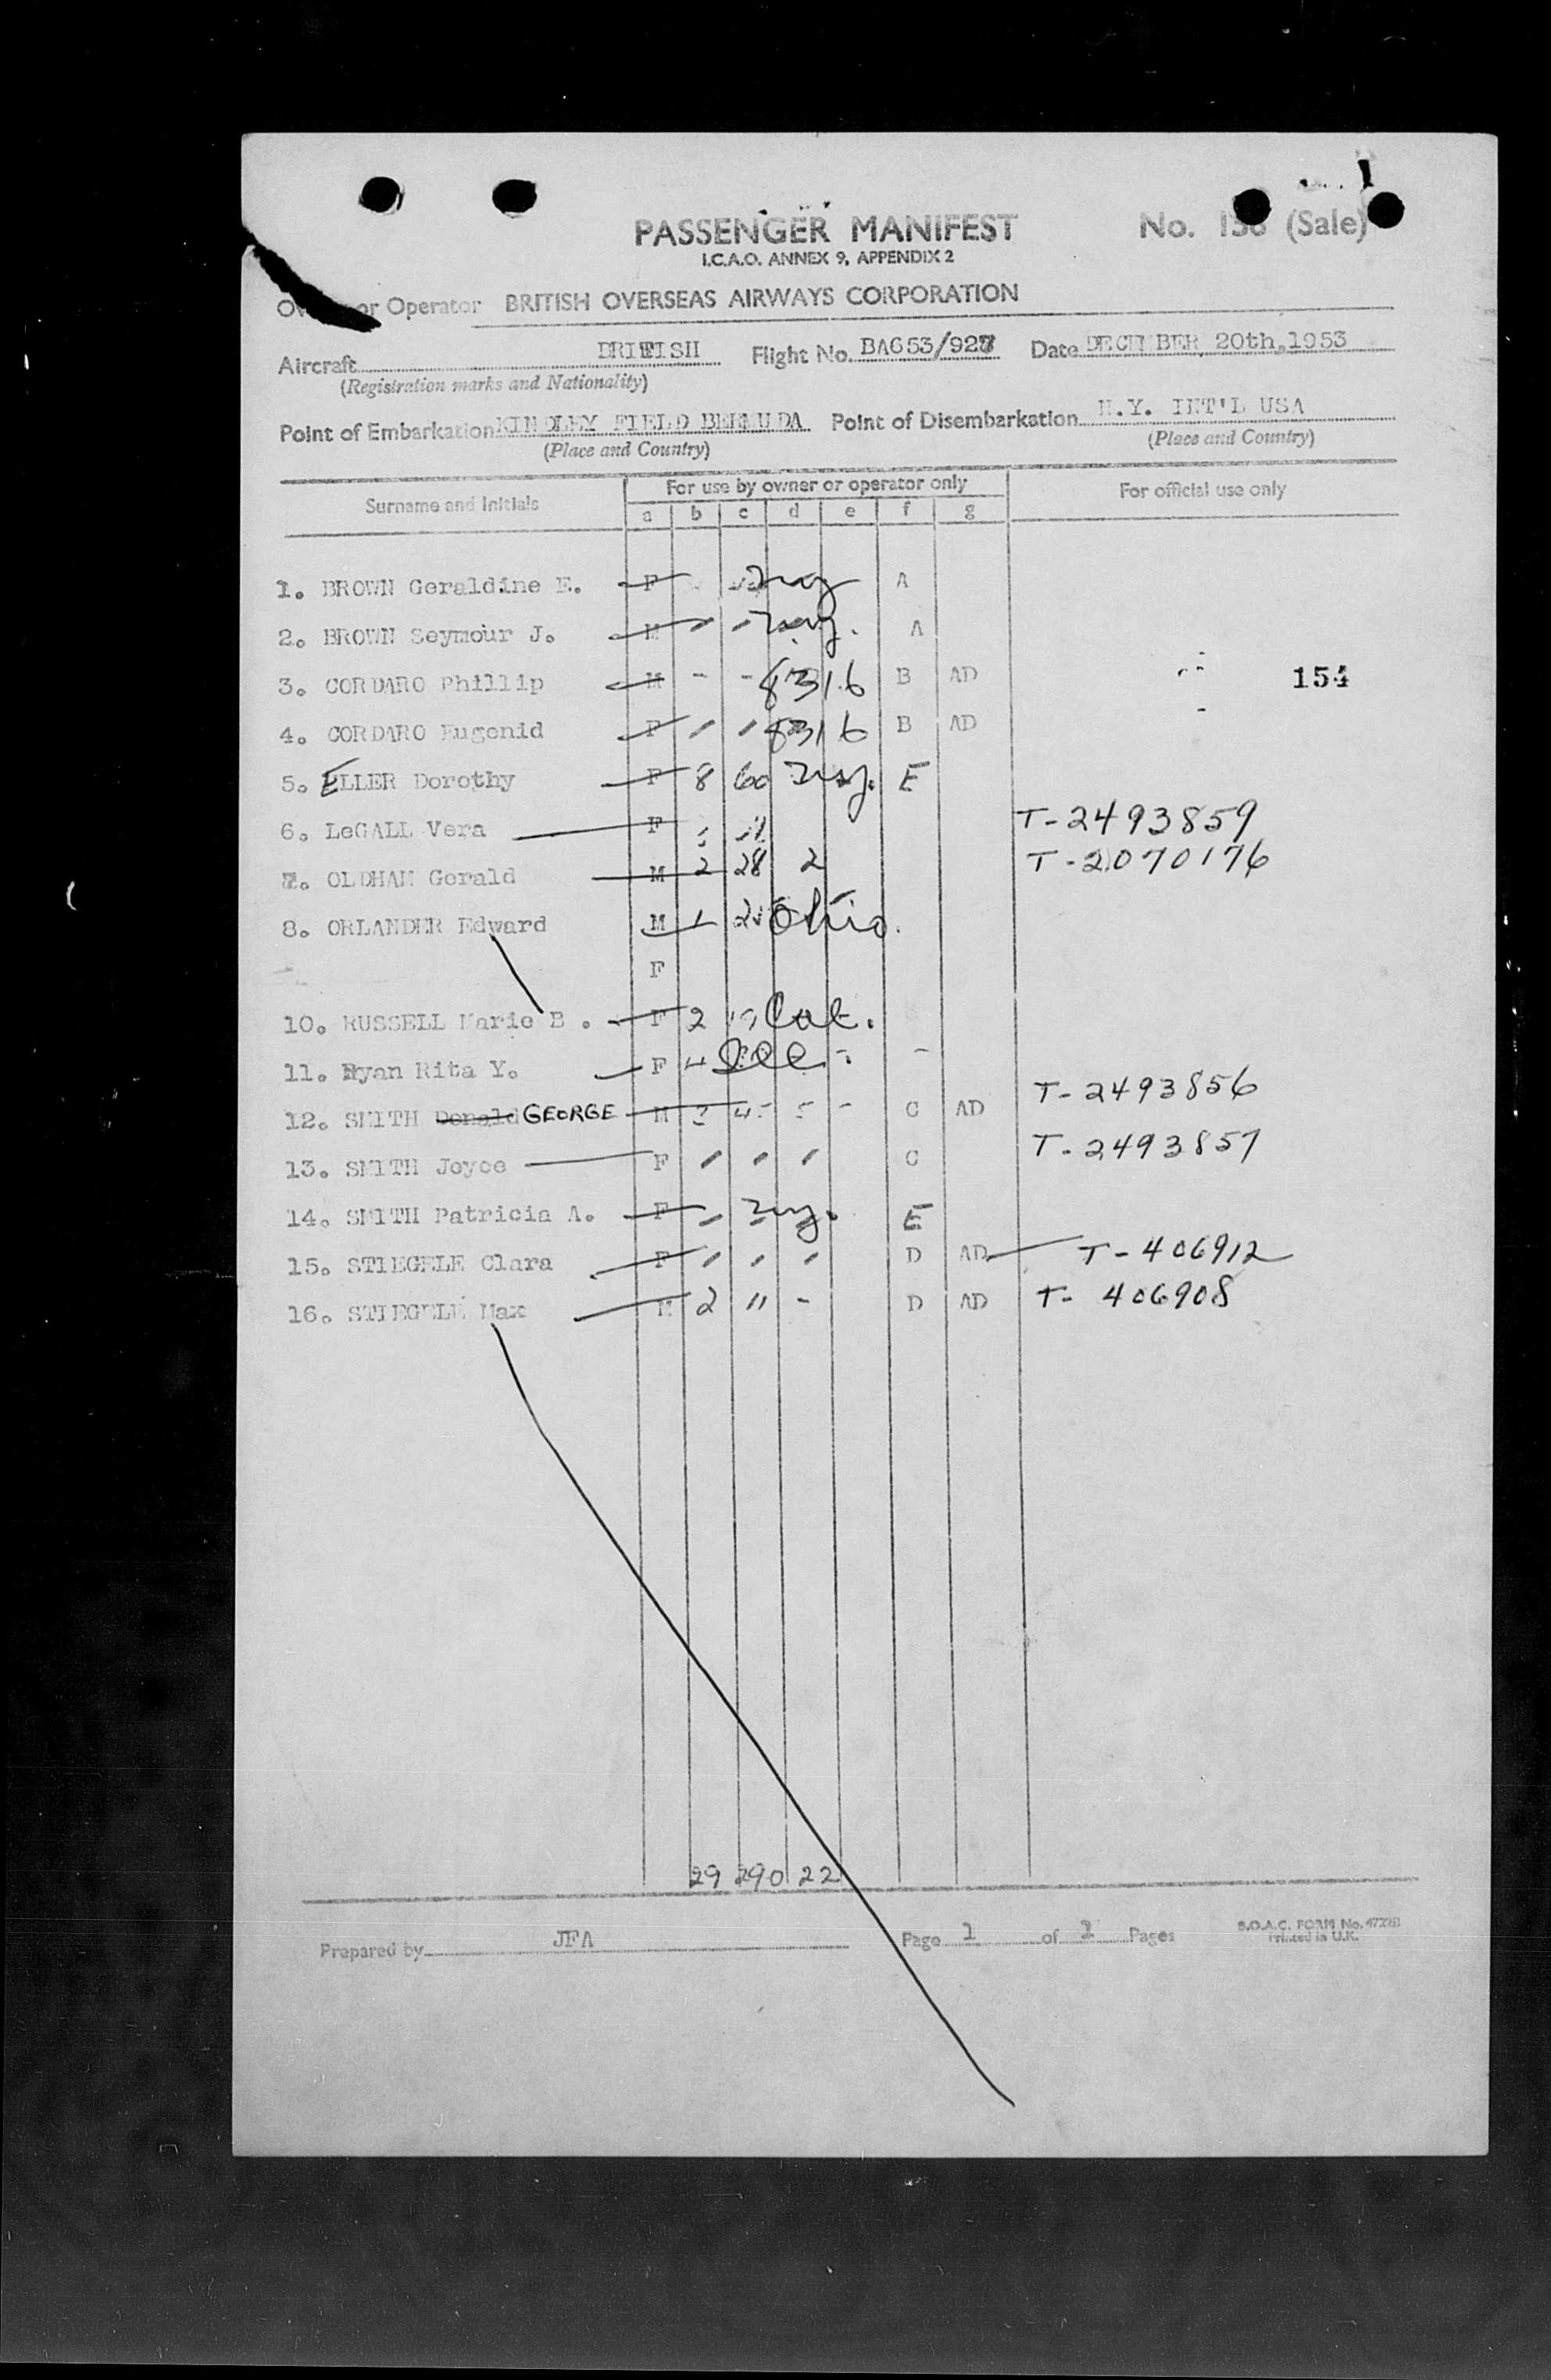 PASSENGER MANIFEST
No. (Sale)
I.C.A.O. ANNEX 9, APPENDIX 2
or Operator BRITISH OVERSEAS AIRWAYS CORPORATION
Aircraft BRITISH Flight No. BA653/927 Date DECEMBER 20th, 1953
(Registration marks and Nationality)
Point of Embarkation KINDLEY FIELD BERMUDA Point of Disembarkation N.Y. INT'L USA
(Place and Country) (Place and Country)
Surname and Initials For use by owner or operator only For official use only
a b c d e f g
1. BROWN Geraldine E. F A
2. BROWN Seymour J. M A
3. CORDARO Phillip M - - 8316 B AD 154
4. CORDARO Eugenid F 8316 B AD
5. ELLER Dorothy F 8 60 E
6. LeGALL Vera F T-2493859
7. OLDHAM Gerald M 2 28 2 T-2070176
8. ORLANDER Edward M 1 Ohio.
F
10. RUSSELL Marie B. F 2
11. Ryan Rita Y. F
12. SMITH Donald GEORGE M C AD T-2493856
13. SMITH Joyce F C T-2493857
14. SMITH Patricia A. F E
15. STIEGELE Clara F D AD T-406912
16. STIEGELE Max M 2 " - D AD T-406908
29 290 22
Prepared by JFA Page 1 of 1 Pages
B.O.A.C. FORM No.
Printed in U.K.